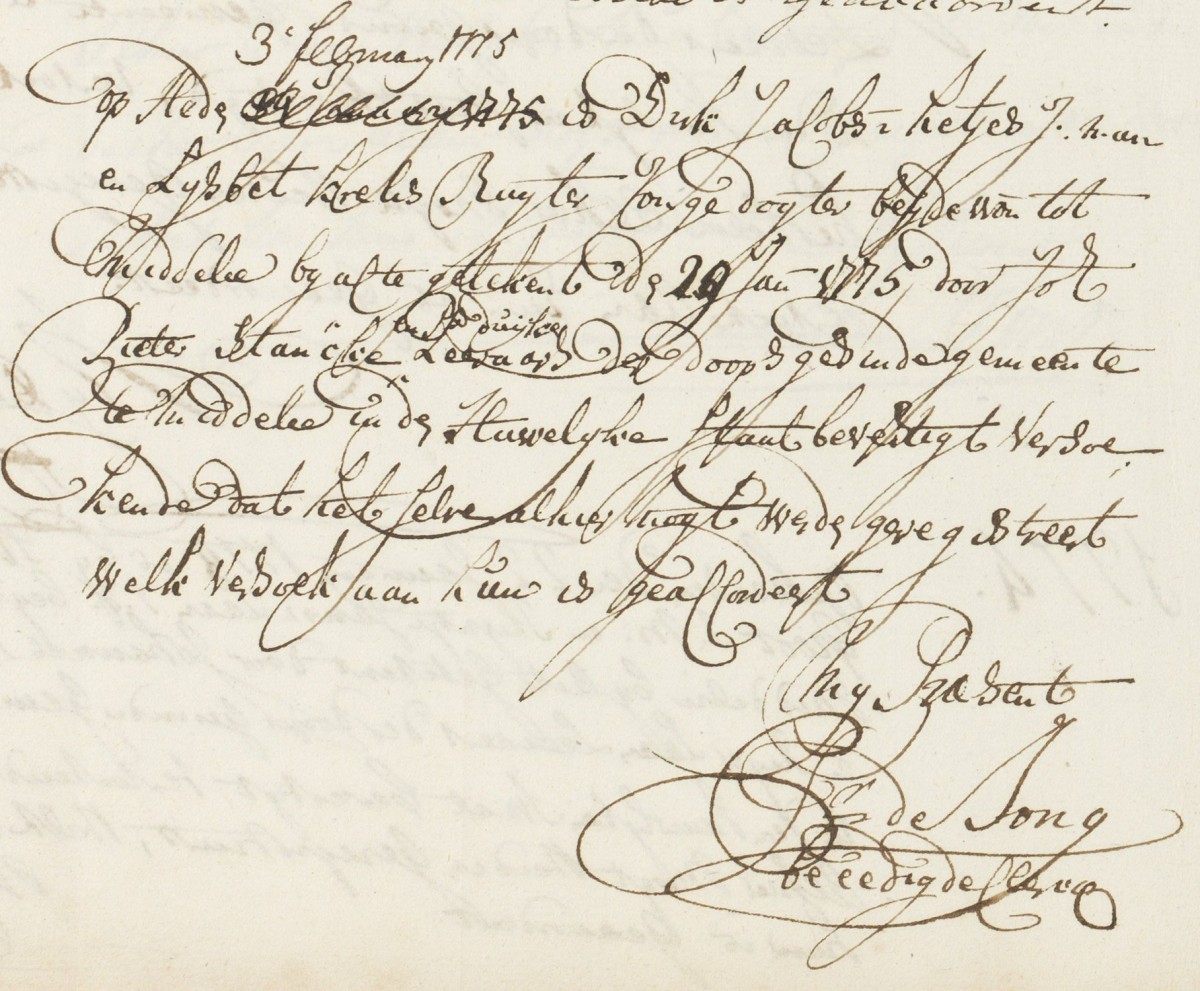 is geaccordeert.
3e february 1775
op Heden is Dirk Jacobsz Ketjes J. man
en Lysbet Krelis Ruyter Jonge dogter beyde won tot
Middelie by acte getekent den 29 Jan 1775, door Jo
en duijke
Pieter Leeraars der doops gesinde gemeente
te Middelie in den Huwelyke Staat bevestigt versoe
kende dat het selve alhier mogt werden geregistreert
welk versoek aan hun is geaccordeert
My Present
de Jong
beeedigde Clercq